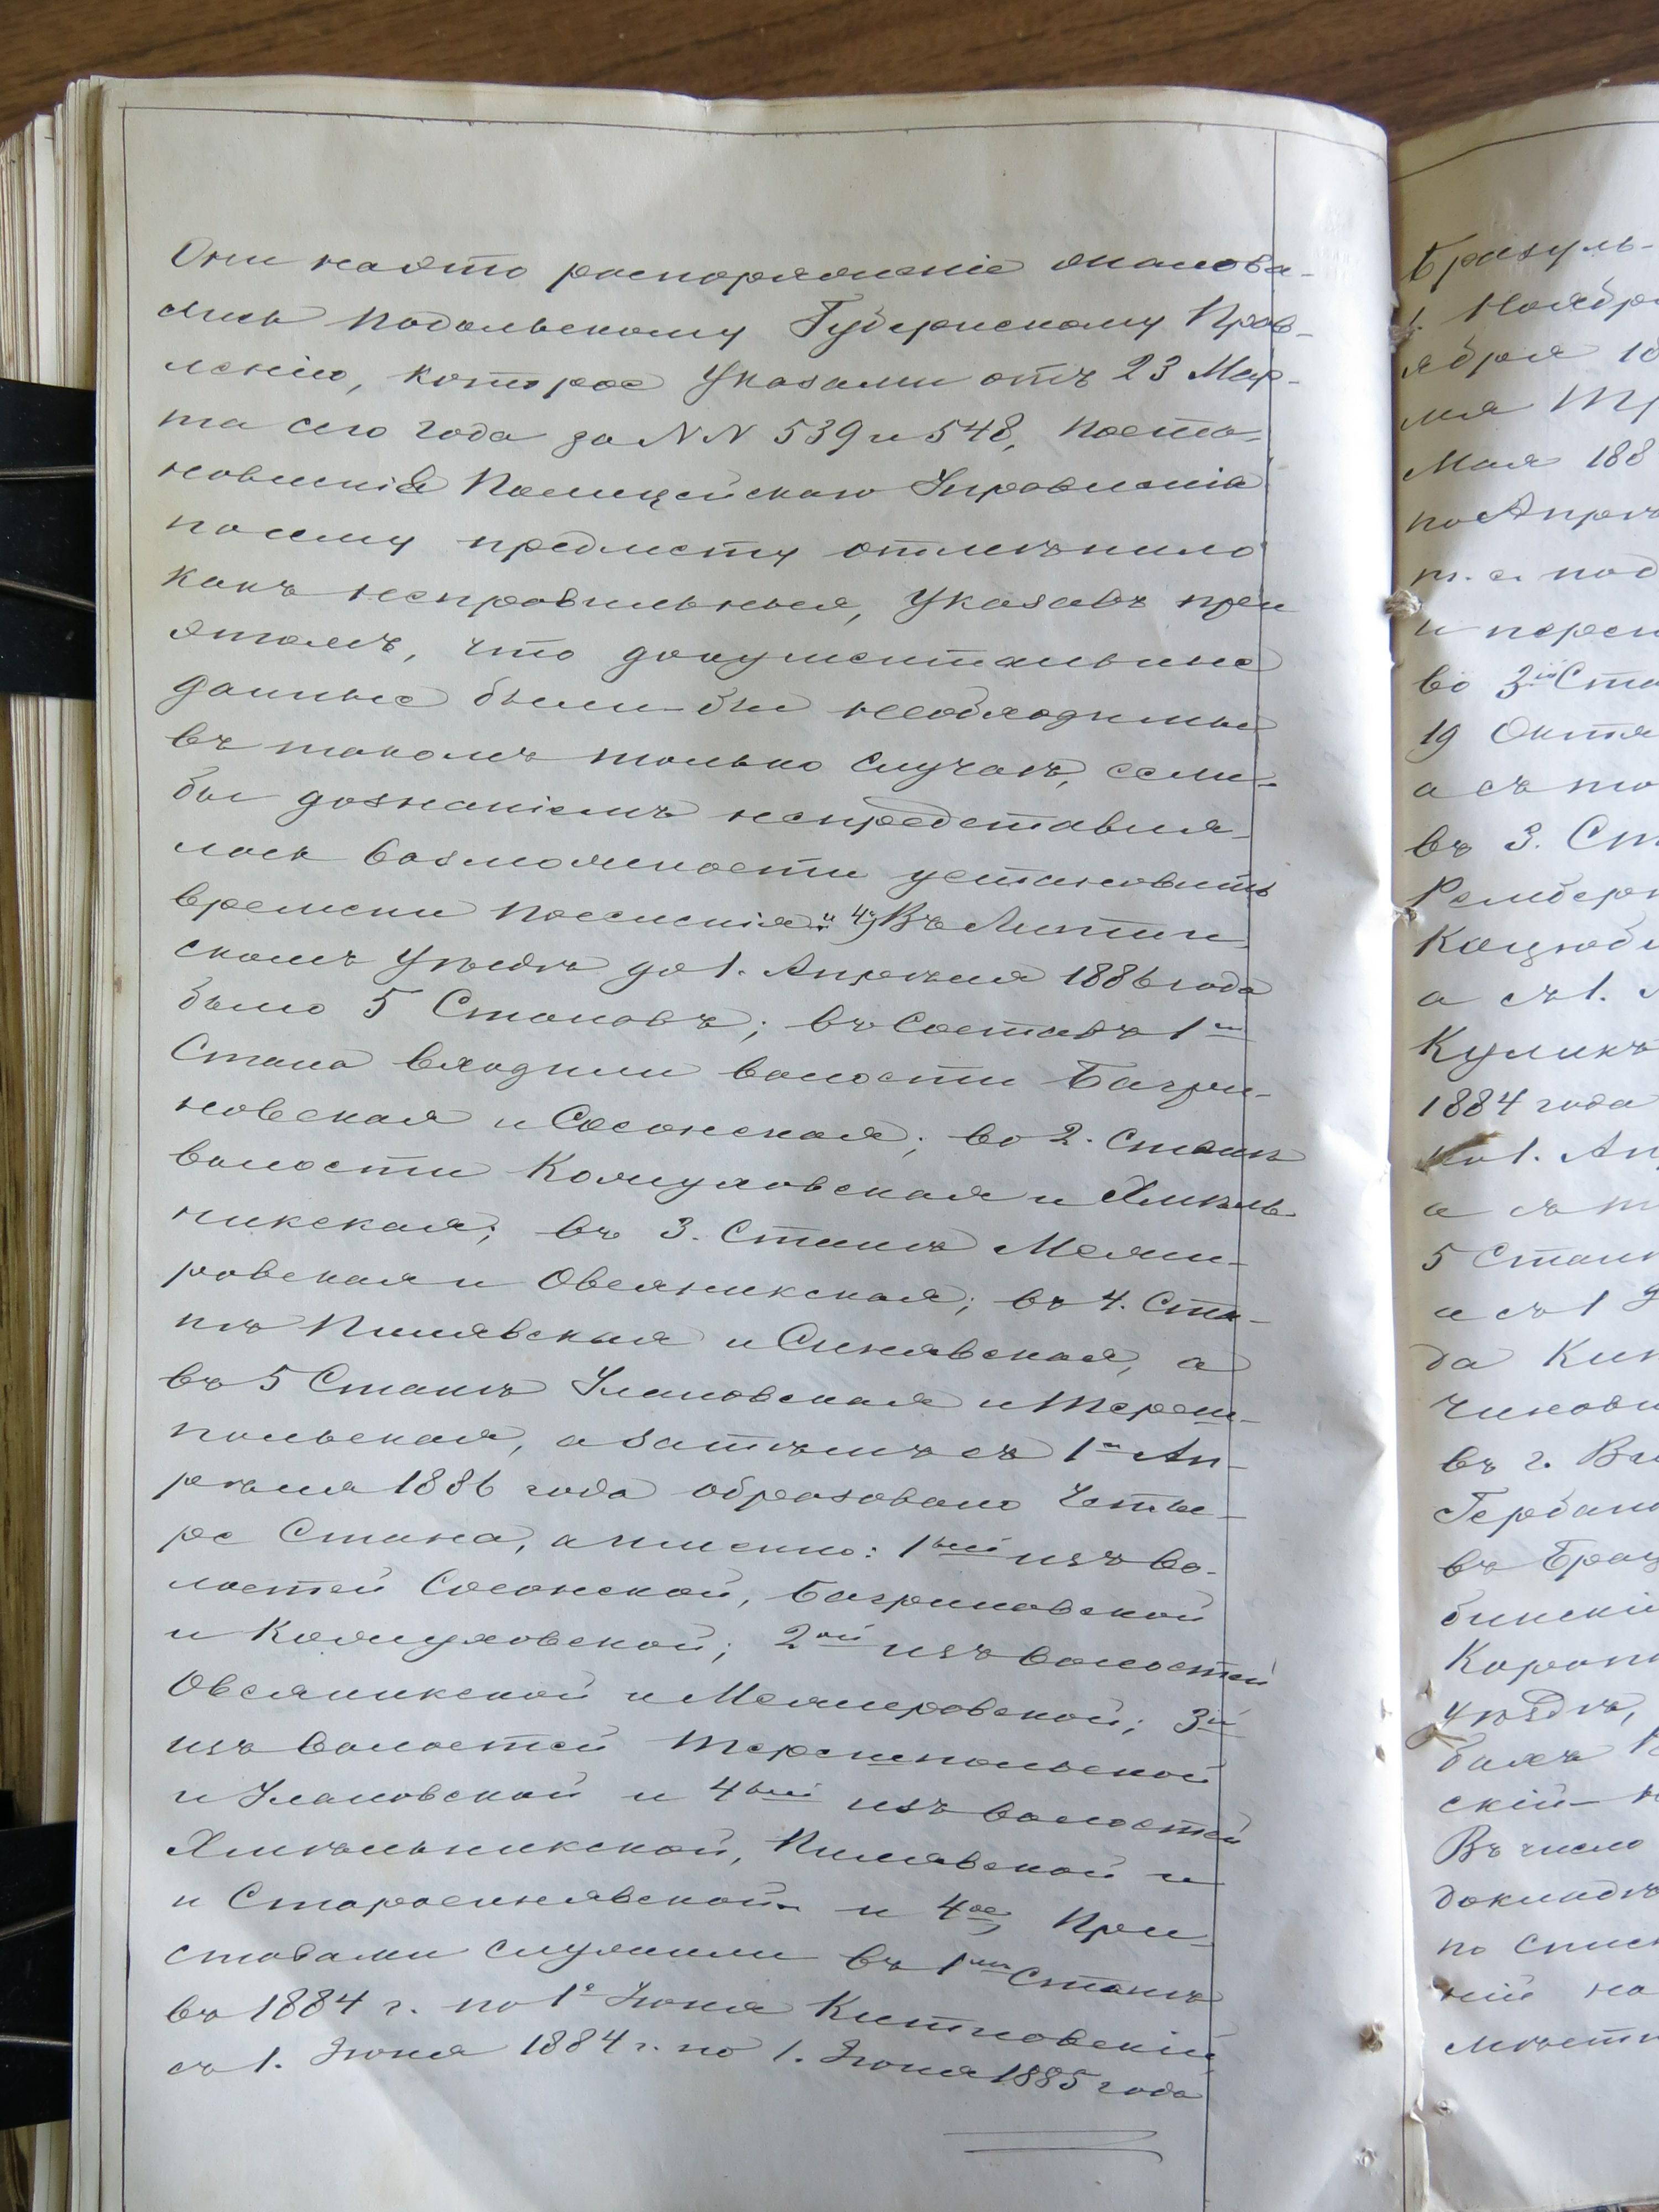 Они на это распоряженіе жалова-
лись Подольскому Губернскому Прав-
ленію, которое Указами отъ 23 Мар-
та сего года за NN 539 и 548, поста-
новленія Полицейскаго Управленія
по сему предмету отмѣнило
какъ неправильныя, указавъ при
этомъ, что документальные
данные были-бы необходимы
въ такомъ только случаѣ, если-
бы дознаніемъ непредставля-
лось возможности установить
времени поселенія." 4) Въ Литин-
скомъ уѣздѣ до 1. Апрѣля 1886 года
было 5 Становъ; въ Составъ 1го
Стана входили волости Багри-
новская и Сосонская; во 2. Станѣ
волости Кожуховская и Хмѣль-
никская; въ 3. Станѣ Межи-
ровская и Овсяникская; въ 4. Ста-
нѣ Пилявская и Синявская, а
въ 5 Станѣ Улановская и Тереш-
польская, а затѣмъ съ 1го Ап-
рѣля 1886 года образовано четы-
ре Стана, а именно: 1ый изъ во-
лостей Сосонской, Багриновской
и Кожуховской; 2ой изъ волостей
Овсяникской и Межировской; 3й
изъ волостей Терешпольской
и Улановской и 4ый изъ волостей
Хмѣльникской, Пилявской и
и Старосинявской и 4ое) При-
ставами служили въ 1мъ Станѣ
въ 1884 г. по 1е Іюня Китновскій
съ 1. Іюня 1884 г. по 1. Іюня 1885 года
Бразуль-
1. Ноября
ября 18
Мая 188
по Апрѣ
т. е. под
во 3й Ста
19 Октя
а съ то
въ 3. Ст
а съ 1.
Куликъ
1884 года
по 1. Ап
а съ
5 Стан
а съ 1
да Ки
чинов
въ г. Ви
въ Брац
уѣздѣ,
скій
Въ число
по спис
ній на
мѣст